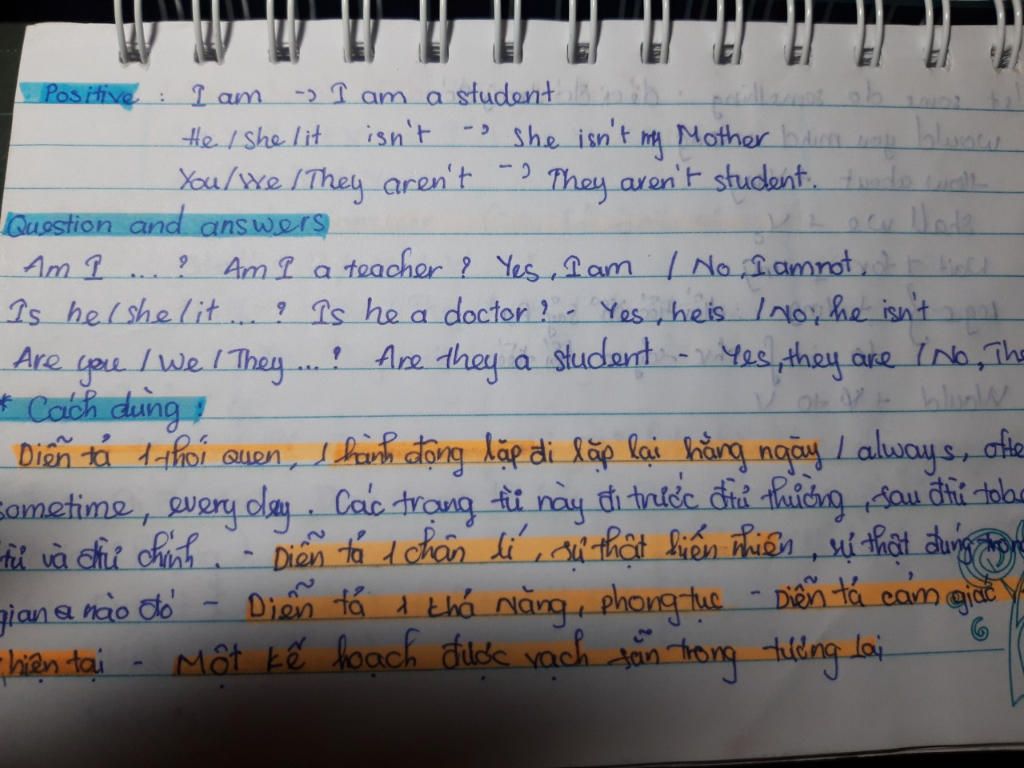 Positive : I am -> I am a student
He / She / it isn't -> She isn't my Mother
You / We / They aren't -> They aren't student.
Question and answers
Am I ... ? Am I a teacher ? Yes, I am / No, I am not.
Is he / she / it ... ? Is he a doctor ? - Yes, he is / No, he isn't
Are you / We / They ... ? Are they a student - Yes, they are / No, The
* Cách dùng :
Diễn tả 1 thói quen, 1 hành động lặp đi lặp lại hằng ngày / always, ofte
sometime, every day. Các trạng từ này đi trước đtừ thường, sau đtừ tobe
từ và đtừ chính. - Diễn tả 1 chân lí, sự thật hiển nhiên, sự thật đúng trong
gian nào đó - Diễn tả 1 khả năng, phong tục - Diễn tả cảm giác
hiện tại - Một kế hoạch được vạch sẵn trong tương lai